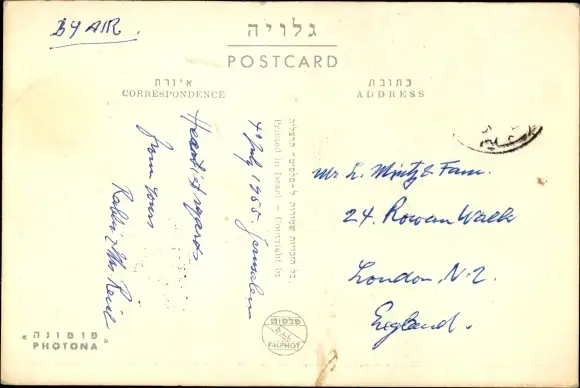 BY AIR.
גלויה
POSTCARD
איגרת
CORRESPONDENCE
כתובת
ADDRESS
4 July 1965. Jerusalem
Heartiest regards
from yours
Rabbi & Mrs
Printed in Israel - Copyright by
כל הזכויות שמורות ל-
Mr L. Mintz & Fam.
24. Rowan Walk
London, N.2.
England.
«פוטונה»
PHOTONA
פלפוט
PALPHOT